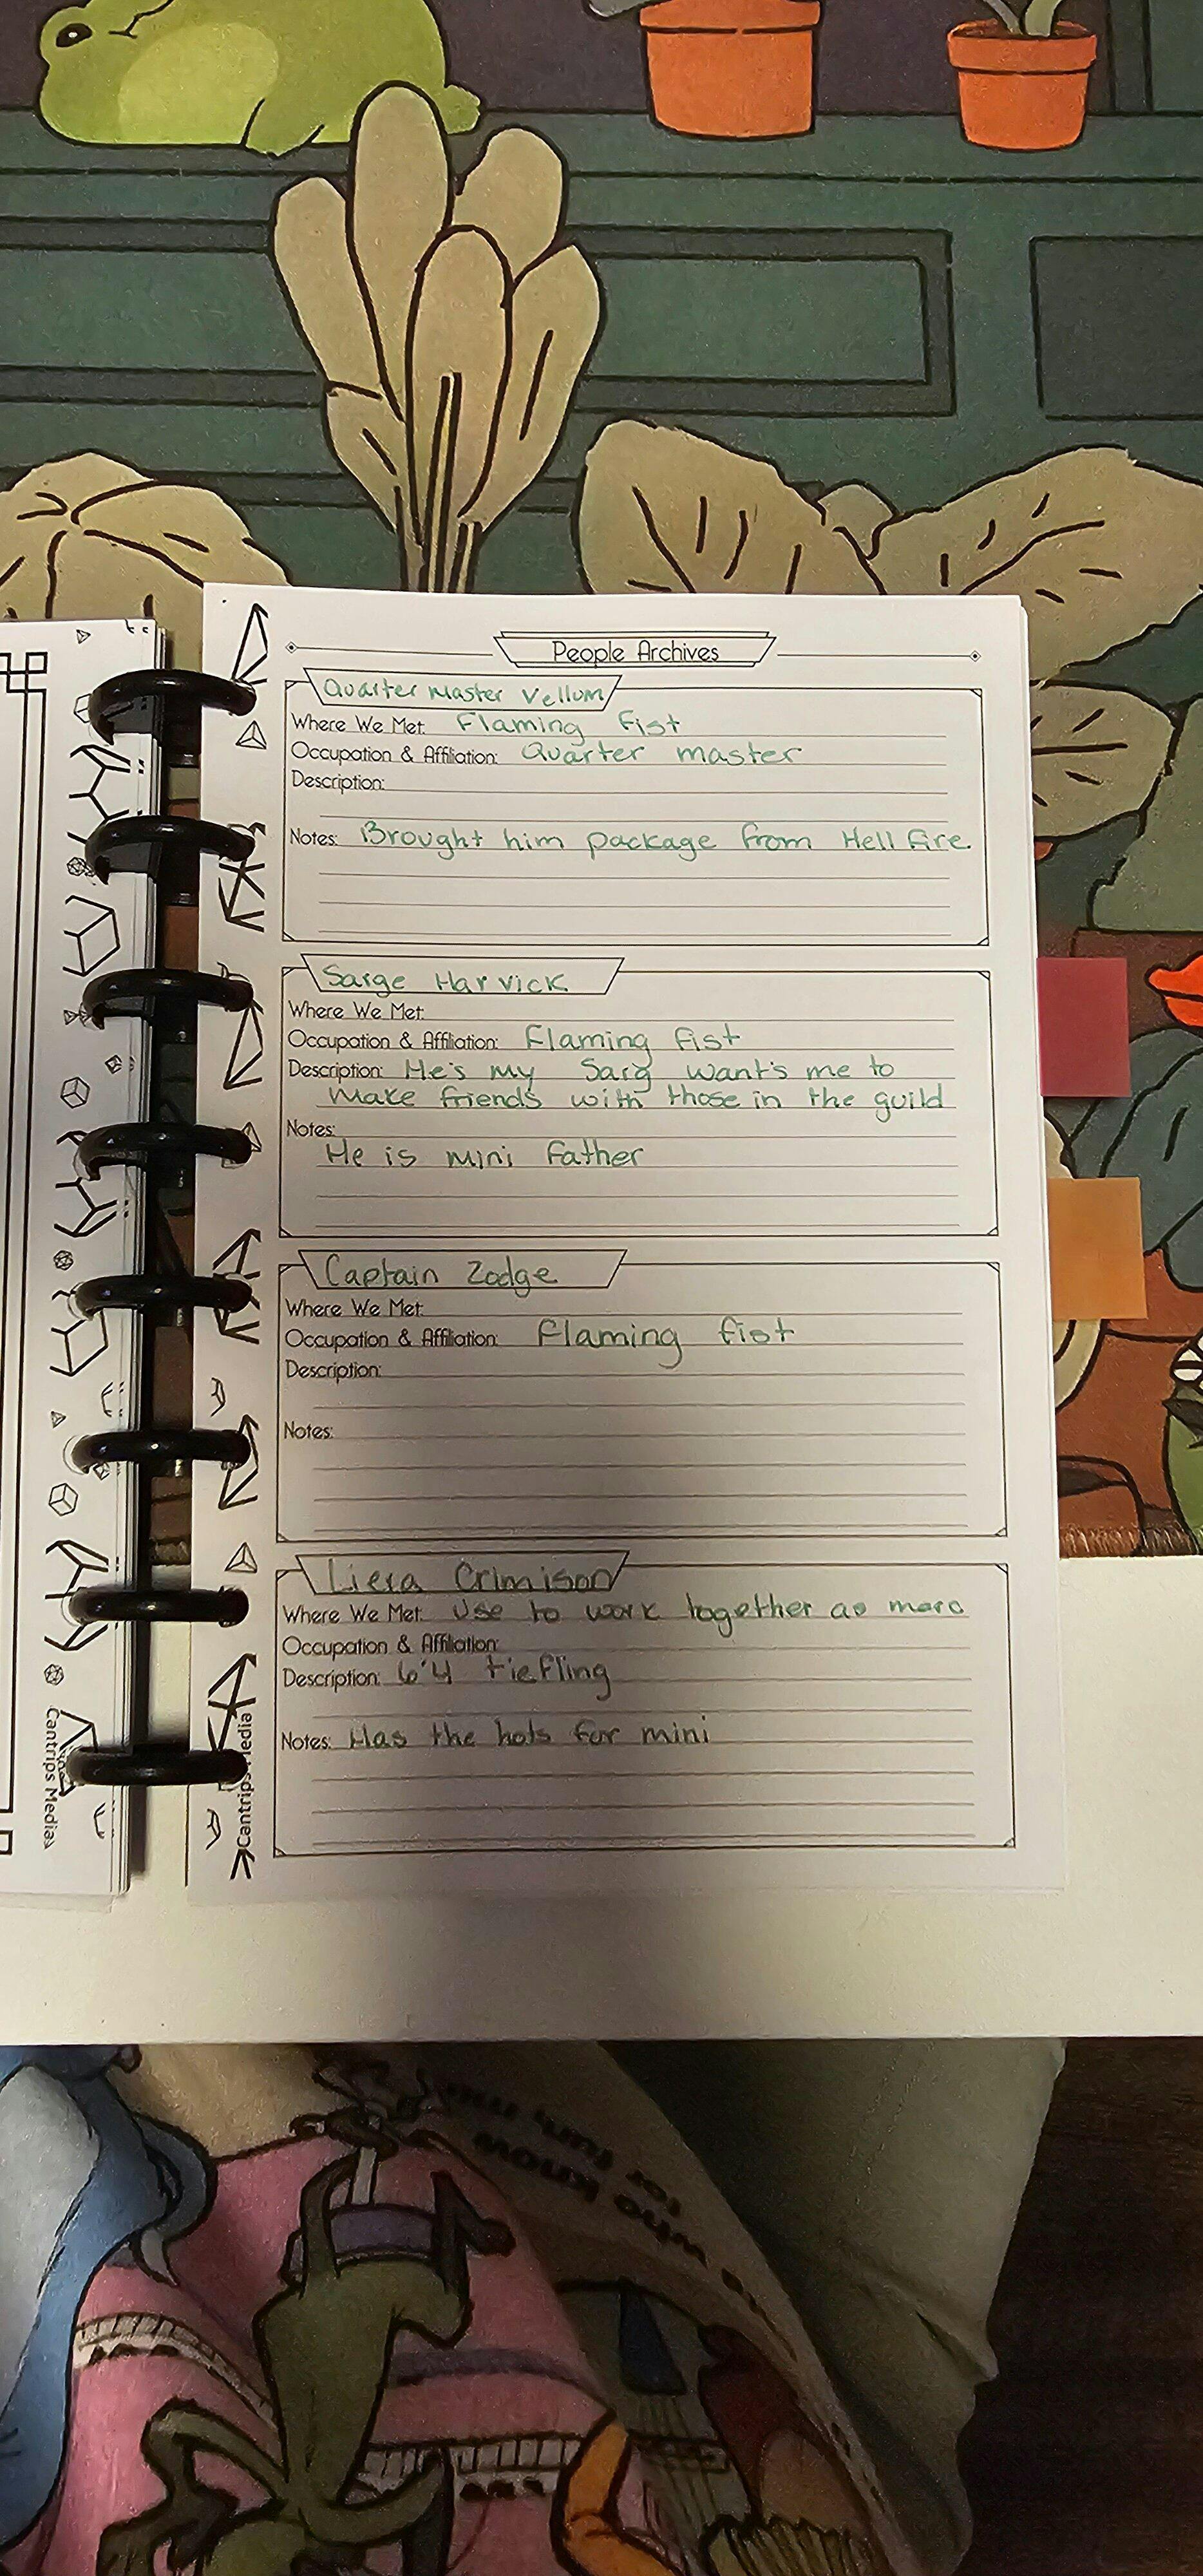 People Archives
Quarter Master Vellum
Where We Met: Flaming Fist
Occupation & Affiliation: Quarter master
Description:
Notes: Brought him package from Hell fire
Sarge Harvick
Where We Met:
Occupation & Affiliation: Flaming fist
Description: He's my Sarg want's me to
make friends with those in the guild
Notes:
He is mini father
Captain Zodge
Where We Met:
Occupation & Affiliation: Flaming fist
Description:
Notes:
Liera Crimison
Where We Met: Use to work together as merc
Occupation & Affiliation:
Description: 6'4 tiefling
Notes: Has the hots for mini
Cantrips Media
Cantrips Media
who know
for fun